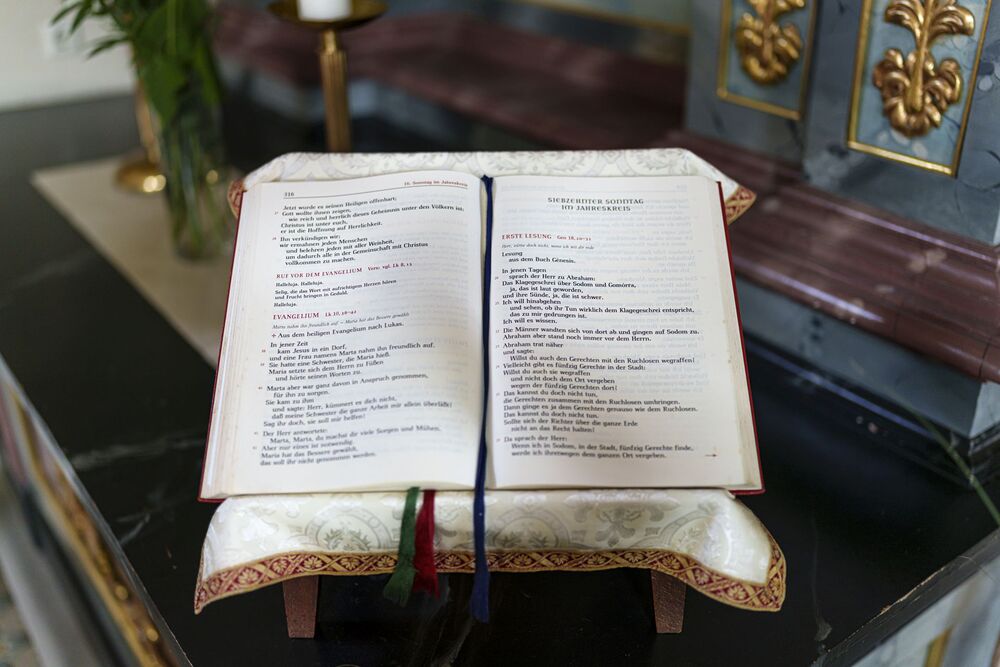 316
16. Sonntag im Jahreskreis
Jetzt wurde es seinen Heiligen offenbart;
27 Gott wollte ihnen zeigen,
wie reich und herrlich dieses Geheimnis unter den Völkern ist:
Christus ist unter euch,
er ist die Hoffnung auf Herrlichkeit.
28 Ihn verkündigen wir;
wir ermahnen jeden Menschen
und belehren jeden mit aller Weisheit,
um dadurch alle in der Gemeinschaft mit Christus
vollkommen zu machen.
RUF VOR DEM EVANGELIUM Vers: vgl. Lk 8, 15
Halleluja. Halleluja.
Selig, die das Wort mit aufrichtigem Herzen hören
und Frucht bringen in Geduld.
Halleluja.
EVANGELIUM Lk 10, 38–42
Marta nahm ihn freundlich auf – Maria hat das Bessere gewählt
✢ Aus dem heiligen Evangelium nach Lukas.
In jener Zeit
38 kam Jesus in ein Dorf,
und eine Frau namens Marta nahm ihn freundlich auf.
39 Sie hatte eine Schwester, die Maria hieß.
Maria setzte sich dem Herrn zu Füßen
und hörte seinen Worten zu.
40 Marta aber war ganz davon in Anspruch genommen,
für ihn zu sorgen.
Sie kam zu ihm
und sagte: Herr, kümmert es dich nicht,
daß meine Schwester die ganze Arbeit mir allein überläßt?
Sag ihr doch, sie soll mir helfen!
41 Der Herr antwortete:
Marta, Marta, du machst dir viele Sorgen und Mühen.
42 Aber nur eines ist notwendig.
Maria hat das Bessere gewählt,
das soll ihr nicht genommen werden.
SIEBZEHNTER SONNTAG
IM JAHRESKREIS
ERSTE LESUNG Gen 18, 20–32
Herr, zürne doch nicht, wenn ich mit dir rede
Lesung
aus dem Buch Génesis.
In jenen Tagen
20 sprach der Herr zu Abraham:
Das Klagegeschrei über Sodom und Gomórra,
ja, das ist laut geworden,
und ihre Sünde, ja, die ist schwer.
21 Ich will hinabgehen
und sehen, ob ihr Tun wirklich dem Klagegeschrei entspricht,
das zu mir gedrungen ist.
Ich will es wissen.
22 Die Männer wandten sich von dort ab und gingen auf Sodom zu.
Abraham aber stand noch immer vor dem Herrn.
23 Abraham trat näher
und sagte:
Willst du auch den Gerechten mit den Ruchlosen wegraffen?
24 Vielleicht gibt es fünfzig Gerechte in der Stadt:
Willst du auch sie wegraffen
und nicht doch dem Ort vergeben
wegen der fünfzig Gerechten dort?
25 Das kannst du doch nicht tun,
die Gerechten zusammen mit den Ruchlosen umbringen.
Dann ginge es ja dem Gerechten genauso wie dem Ruchlosen.
Das kannst du doch nicht tun.
Sollte sich der Richter über die ganze Erde
nicht an das Recht halten?
26 Da sprach der Herr:
Wenn ich in Sodom, in der Stadt, fünfzig Gerechte finde,
werde ich ihretwegen dem ganzen Ort vergeben.